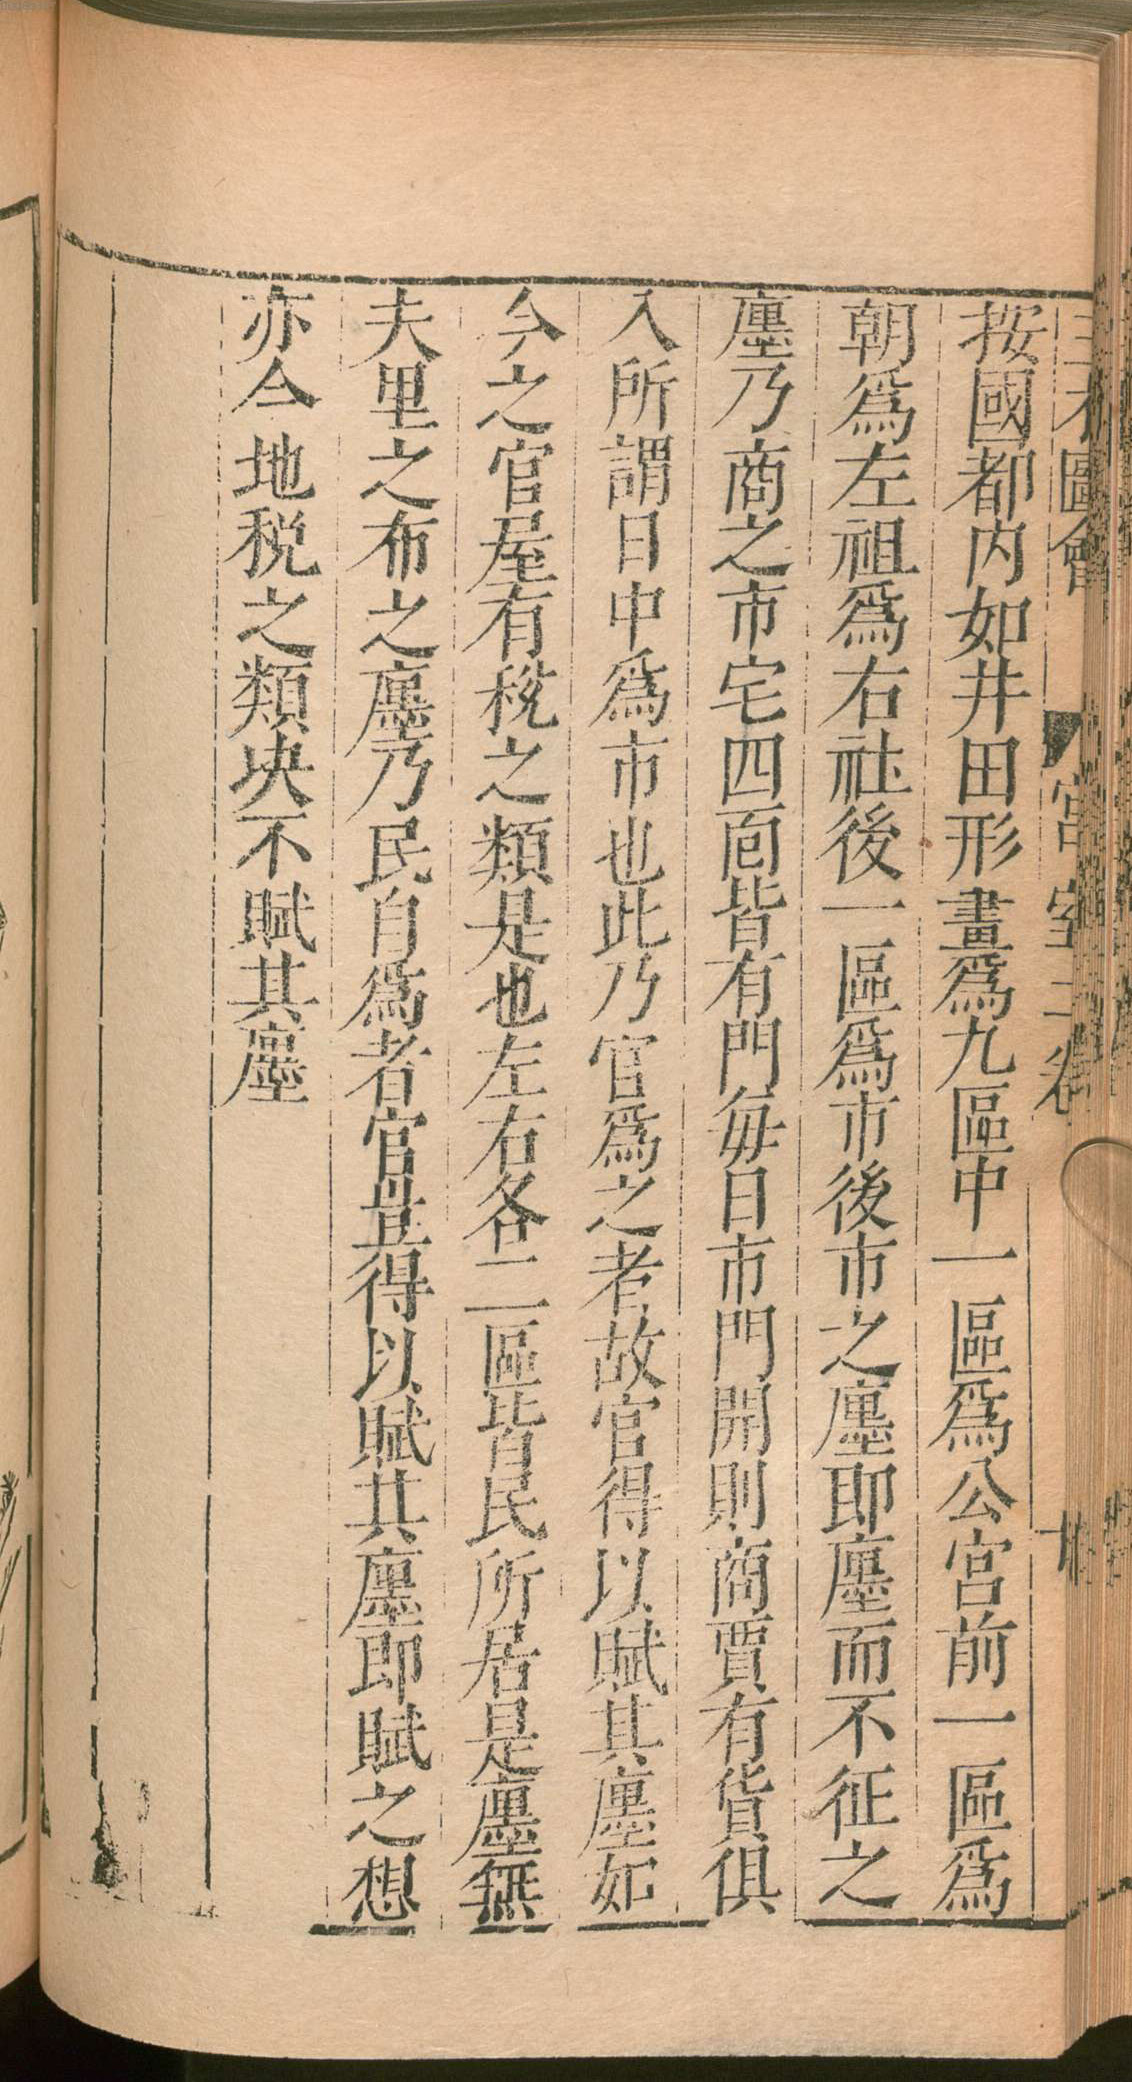 三才圖會 宮室二卷 十
按國都內如井田形畫爲九區中一區爲公宮前一區爲
朝爲左祖爲右社後一區爲市後市之廛卽廛而不征之
廛乃商之市宅四面皆有門每日市門開則商賈有貨俱
入所謂日中爲市也此乃官爲之者故官得以賦其廛如
今之官屋有稅之類是也左右各二區皆民所居是廛無
夫里之布之廛乃民自爲者官豈得以賦其廛即賦之想
亦今地稅之類決不賦其廛